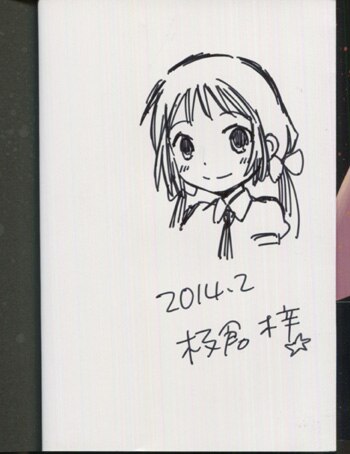 2014.2
板倉 梓☆